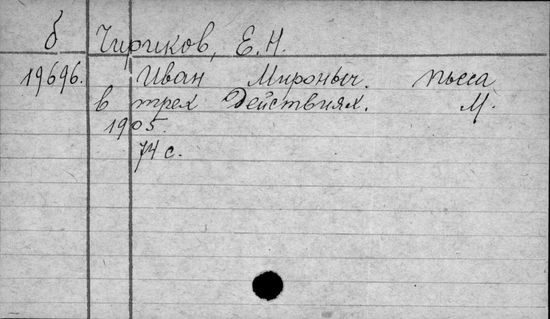 б Чириков, Е.Н.
19696. Иван Мироныч. пьеса
в трех действиях. М.
1905.
74 с.